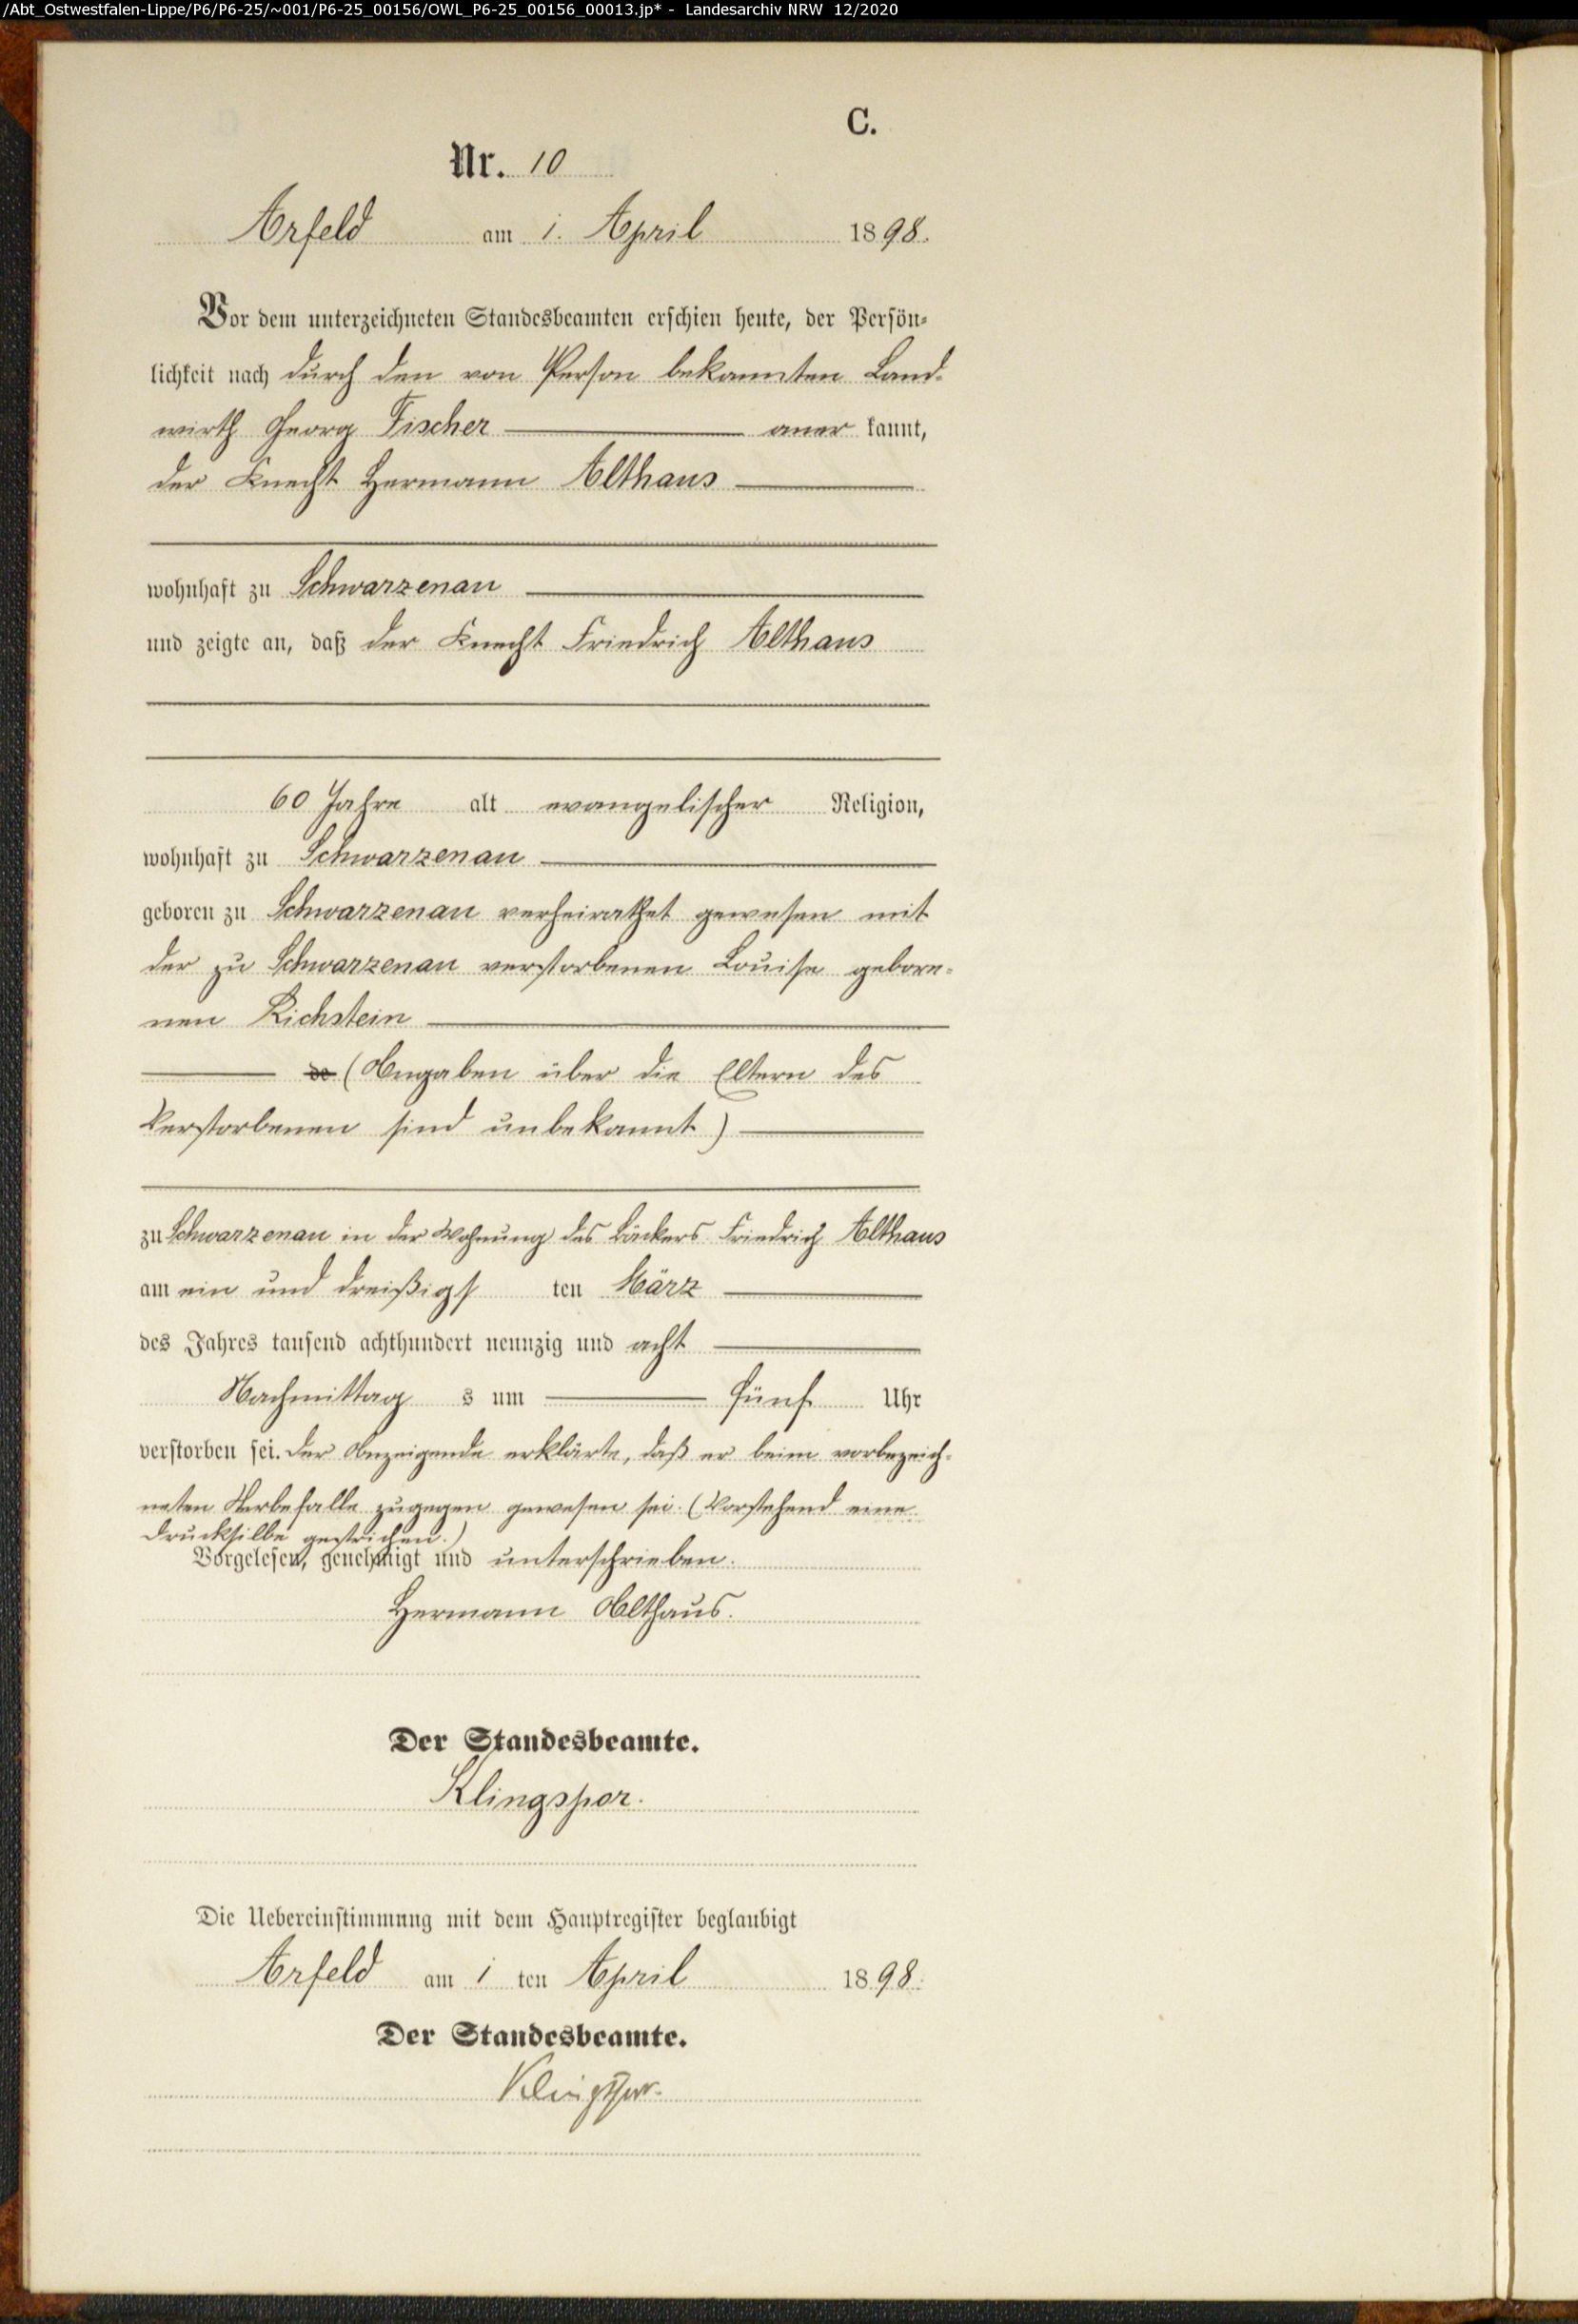 /Abt_Ostwestfalen-Lippe/P6/P6-25/~001/P6-25_00156/OWL_P6-25_00156_00013.jp* - Landesarchiv NRW 12/2020
C.
Nr. 10
Arfeld am 1. April 1898.
Vor dem unterzeichneten Standesbeamten erschien heute, der Persön-
lichkeit nach durch den von Person bekannten Land-
wirth Georg Fischer aner kannt,
der Knecht Hermann Althaus
wohnhaft zu Schwarzenau
und zeigte an, daß der Knecht Friedrich Althaus
60 Jahre alt evangelischer Religion,
wohnhaft zu Schwarzenau
geboren zu Schwarzenau verheirathet gewesen mit
der zu Schwarzenau verstorbenen Louise gebore-
nen Richstein
de (Angaben über die Eltern des
Verstorbenen sind unbekannt)
zu Schwarzenau in der Wohnung des Bäckers Friedrich Althaus
am ein und dreißigs ten März
des Jahres tausend achthundert neunzig und acht
Nachmittag s um fünf Uhr
verstorben sei. Der Anzeigende erklärte, daß er beim vorbezeich-
neten Sterbefalle zugegen gewesen sei. (Vorstehend eine
Drucksilbe gestrichen.)
Vorgelesen, genehmigt und unterschrieben.
Hermann Althaus.
Der Standesbeamte.
Klingspor.
Die Uebereinstimmung mit dem Hauptregister beglaubigt
Arfeld am 1 ten April 1898.
Der Standesbeamte.
Klingspor.